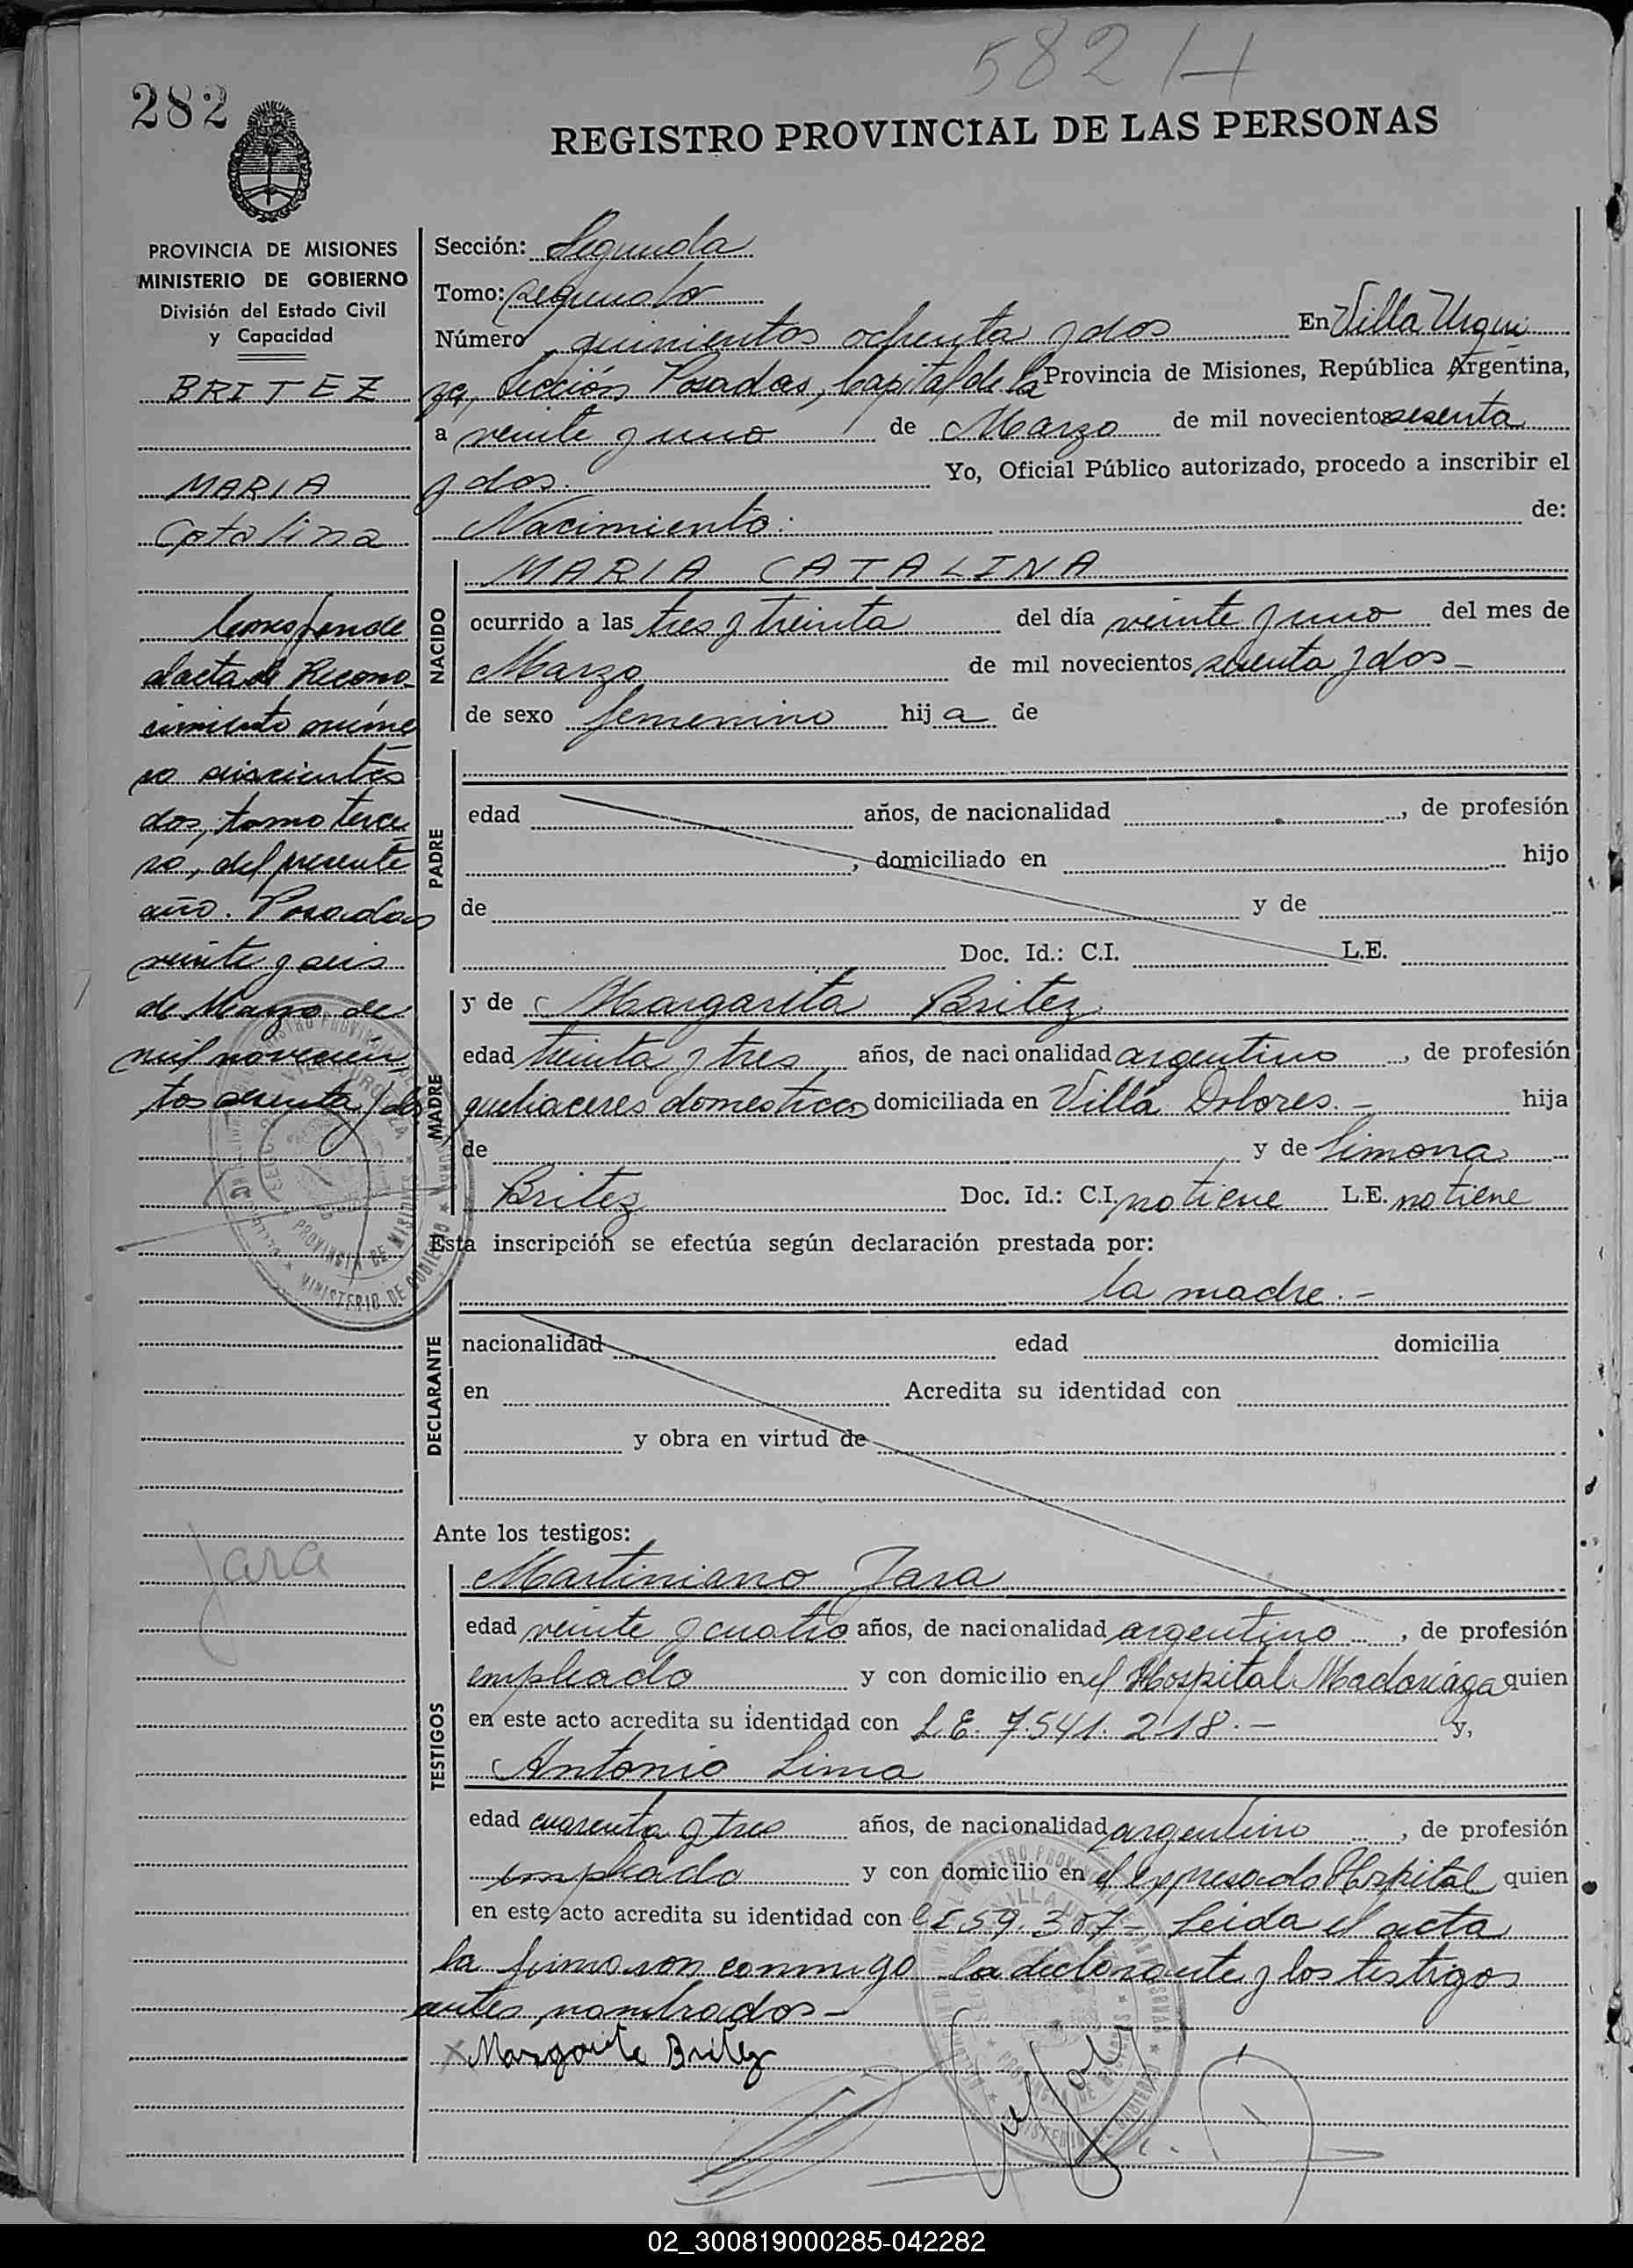 582 H
282
REGISTRO PROVINCIAL DE LAS PERSONAS
PROVINCIA DE MISIONES
MINISTERIO DE GOBIERNO
División del Estado Civil
y Capacidad
BRITEZ
MARIA
Catalina
Corresponde
al acta de Recono
cimiento núme
ro seiscientos
dos, tomo terce
ro, del presente
año. Posadas
veinte y seis
de Marzo de
mil novecien
tos sesenta y dos
Jara
Sección: Segunda
Tomo: segundo
Número quinientos ochenta y dos En Villa Urqui
za, Sección Posadas, Capital de la Provincia de Misiones, República Argentina,
a veinte y uno de Marzo de mil novecientos sesenta
y dos. Yo, Oficial Público autorizado, procedo a inscribir el
Nacimiento de:
NACIDO
MARIA CATALINA
ocurrido a las tres y treinta del día veinte y uno del mes de
Marzo de mil novecientos sesenta y dos –
de sexo femenino hij a de
PADRE
edad años, de nacionalidad , de profesión
, domiciliado en hijo
de y de
Doc. Id.: C.I. L.E.
MADRE
y de Margarita Britez
edad treinta y tres años, de nacionalidad argentino , de profesión
quehaceres domesticos domiciliada en Villa Dolores. – hija
de y de Simona
Britez Doc. Id.: C.I. no tiene L.E. no tiene
Esta inscripción se efectúa según declaración prestada por:
la madre. –
DECLARANTE
nacionalidad edad domicilia
en Acredita su identidad con
y obra en virtud de
Ante los testigos:
TESTIGOS
Martiniano Jara
edad veinte y cuatro años, de nacionalidad argentino , de profesión
empleado y con domicilio en el Hospital Madariaga quien
en este acto acredita su identidad con L.E. 7.541.218. – y,
Antonio Lima
edad cuarenta y tres años, de nacionalidad argentino , de profesión
empleado y con domicilio en el expresado Hospital quien
en este acto acredita su identidad con 59.307 – Leida el acta
la firmaron conmigo la declarante y los testigos
antes nombrados –
x Margarita Britez
02_300819000285-042282